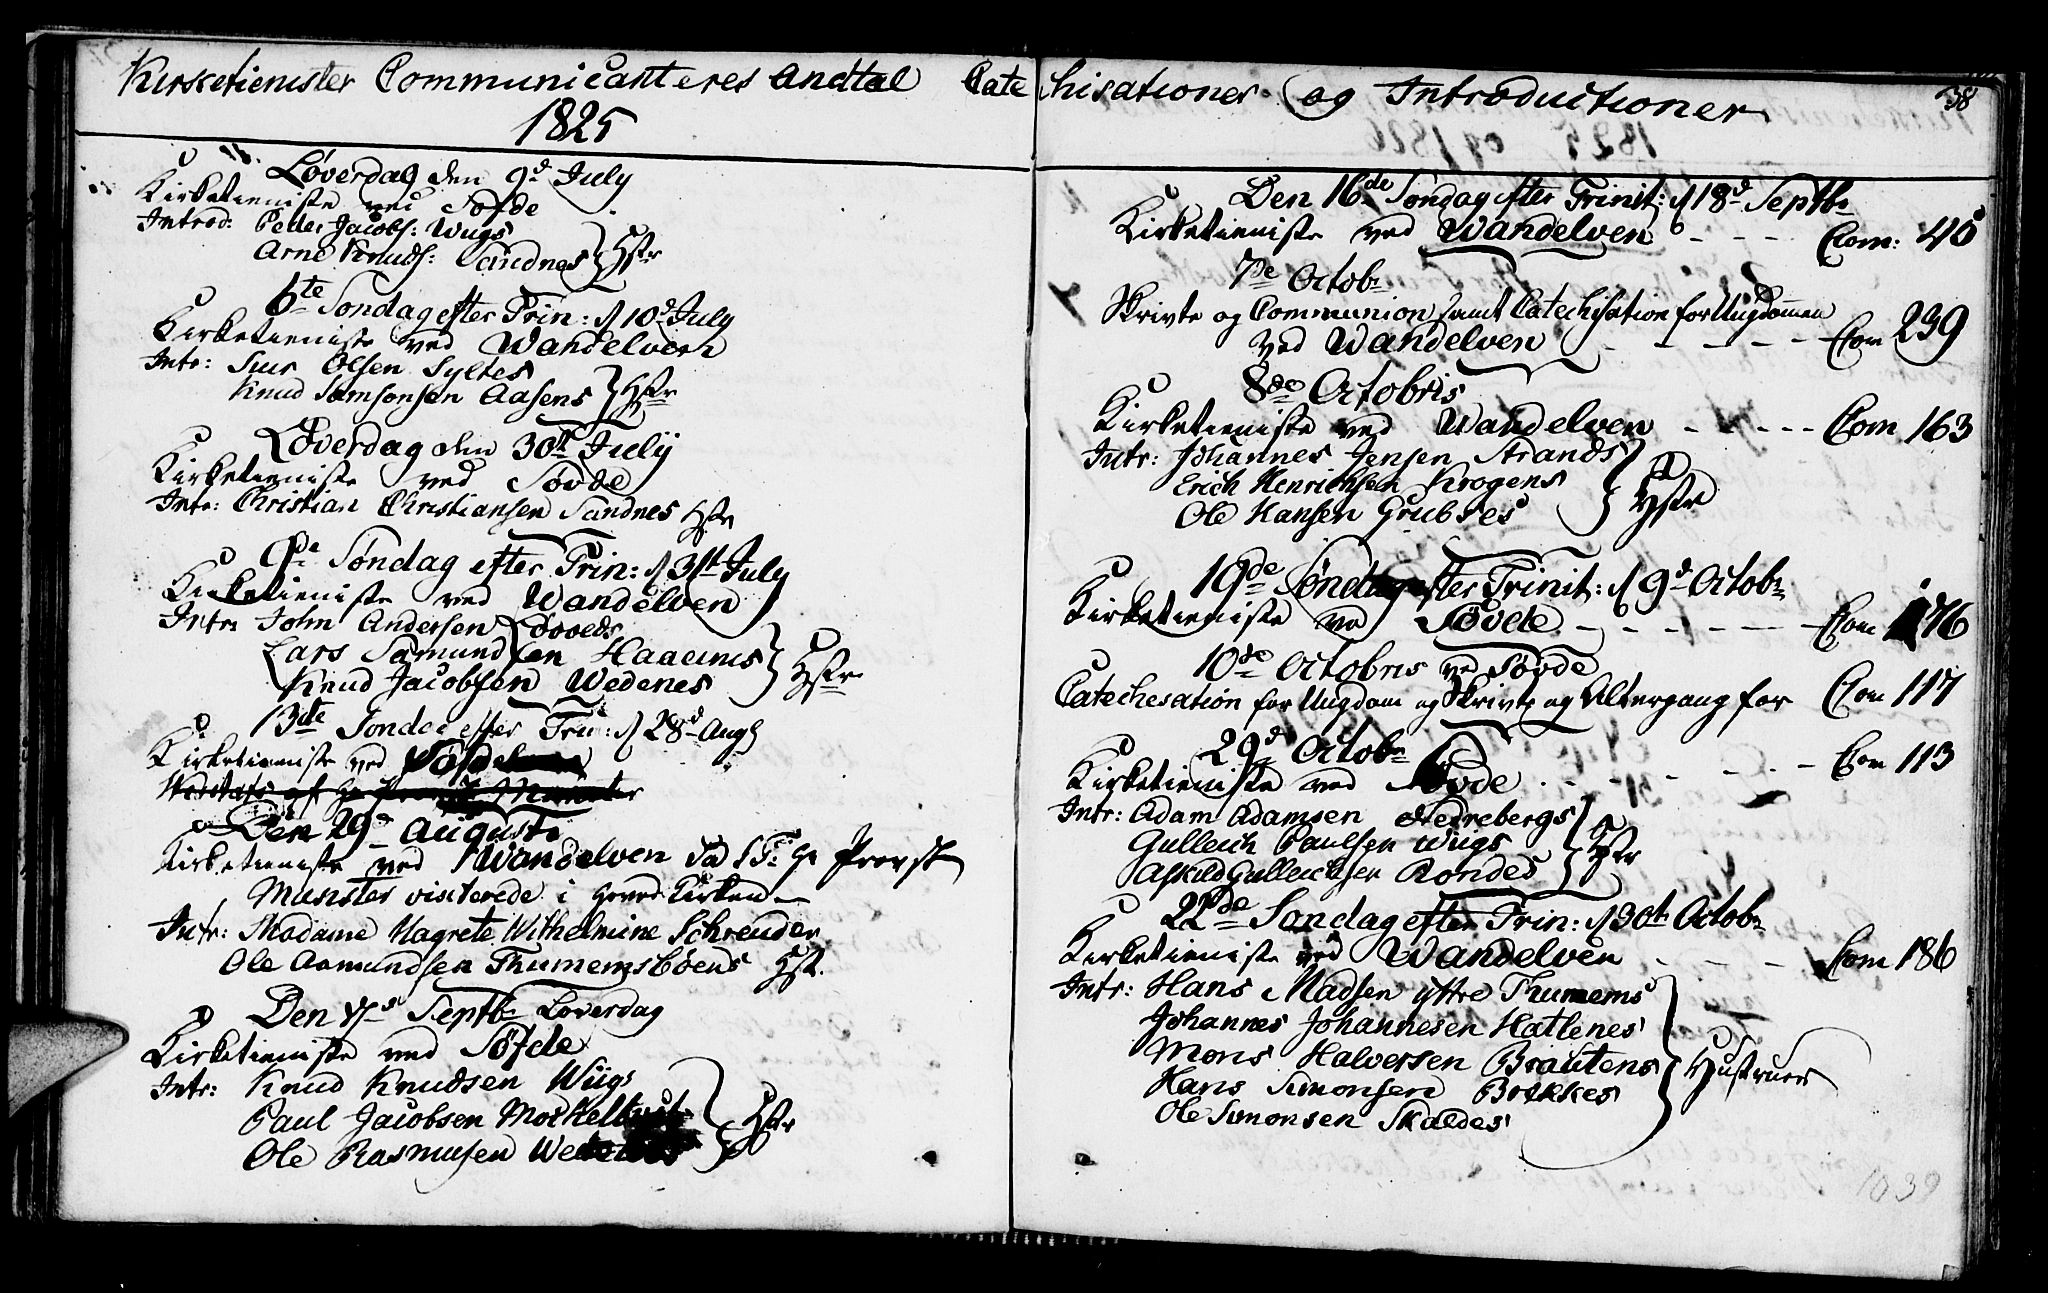 Kirketienister Communicanteres Andtal Catechisationer og Introductioner
38
1825
Løverdag den 9d July
Kirketieniste ved Søfde
Introd: Peder Jacobs: Wugs
Arne Knuds: Sandnes Hstr
6te Søndag efter Trin: d 10d July
Kirketieniste ved Wandelven
Intr: Siur Olsen Syltes
Knud Samsonsen Aasens Hstr
Løverdag den 30te July
Kirketieniste ved Søvde
Intr: Christian Christiansen Sandnes Hstr
9de Søndag efter Trin: d 31t July
Kirketieniste ved Wandelven
Intr: John Andersen
Lars Samundsen
Knud Jacobsen Wedenes Hstr
13de Søndag efter Trin: d 28d Aug
Kirketieniste ved Søfde
Den 29d Augusti
Kirketieniste ved Wandelven da S.T. Hr Provst
Munster visiterede i Hoved Kirken
Intr: Madame Magrete Wilhelmine Schreuder
Ole Asmundsen Thumemsbøens Hst.
Den 17d Septbr Løverdag
Kirketieniste ved Søfde
Intr: Knud Knudsen Wiigs
Paul Jacobsen
Ole Rasmusen Hstr
Den 16de Søndag efter Trinit: d 18d Septbr
Kirketieniste ved Wandelven - - - Com: 45
7de Octobr
Skrivte og Communion samt Catechisation for Ungdommen
ved Wandelven - - - - - Com 239
8de Octobris
Kirketieniste ved Wandelven - - - - Com 163
Intr: Johannes Jensen Strands
Erich Henrichsen Krogens
Ole Hansen Grubses Hstr
19de Søndag efter Trinit: d 9d Octobr
Kirketieniste ved Søvde - - - - - - Com 176
10de Octobris ved Søvde
Catechesation for Ungdom og Skrivte og Altergang for Com 117
29d Octobr
Kirketieniste ved Søvde - - - - - - Com 113
Intr: Adam Adamsen Nedrebergs
Gulleich Paulsen Wiigs
Askild Gulleichsen Rondes Hstr
22de Søndag efter Trin: d 30te Octobr
Kirketieniste ved Wandelven - - - - Com 186
Intr: Hans Madsen yttre Thumems
Johannes Johannesen Hatlenes
Mons Halversen Brautens
Hans Simonsen Brekkes
Ole Simonsen Skaldes Hustruer
1039